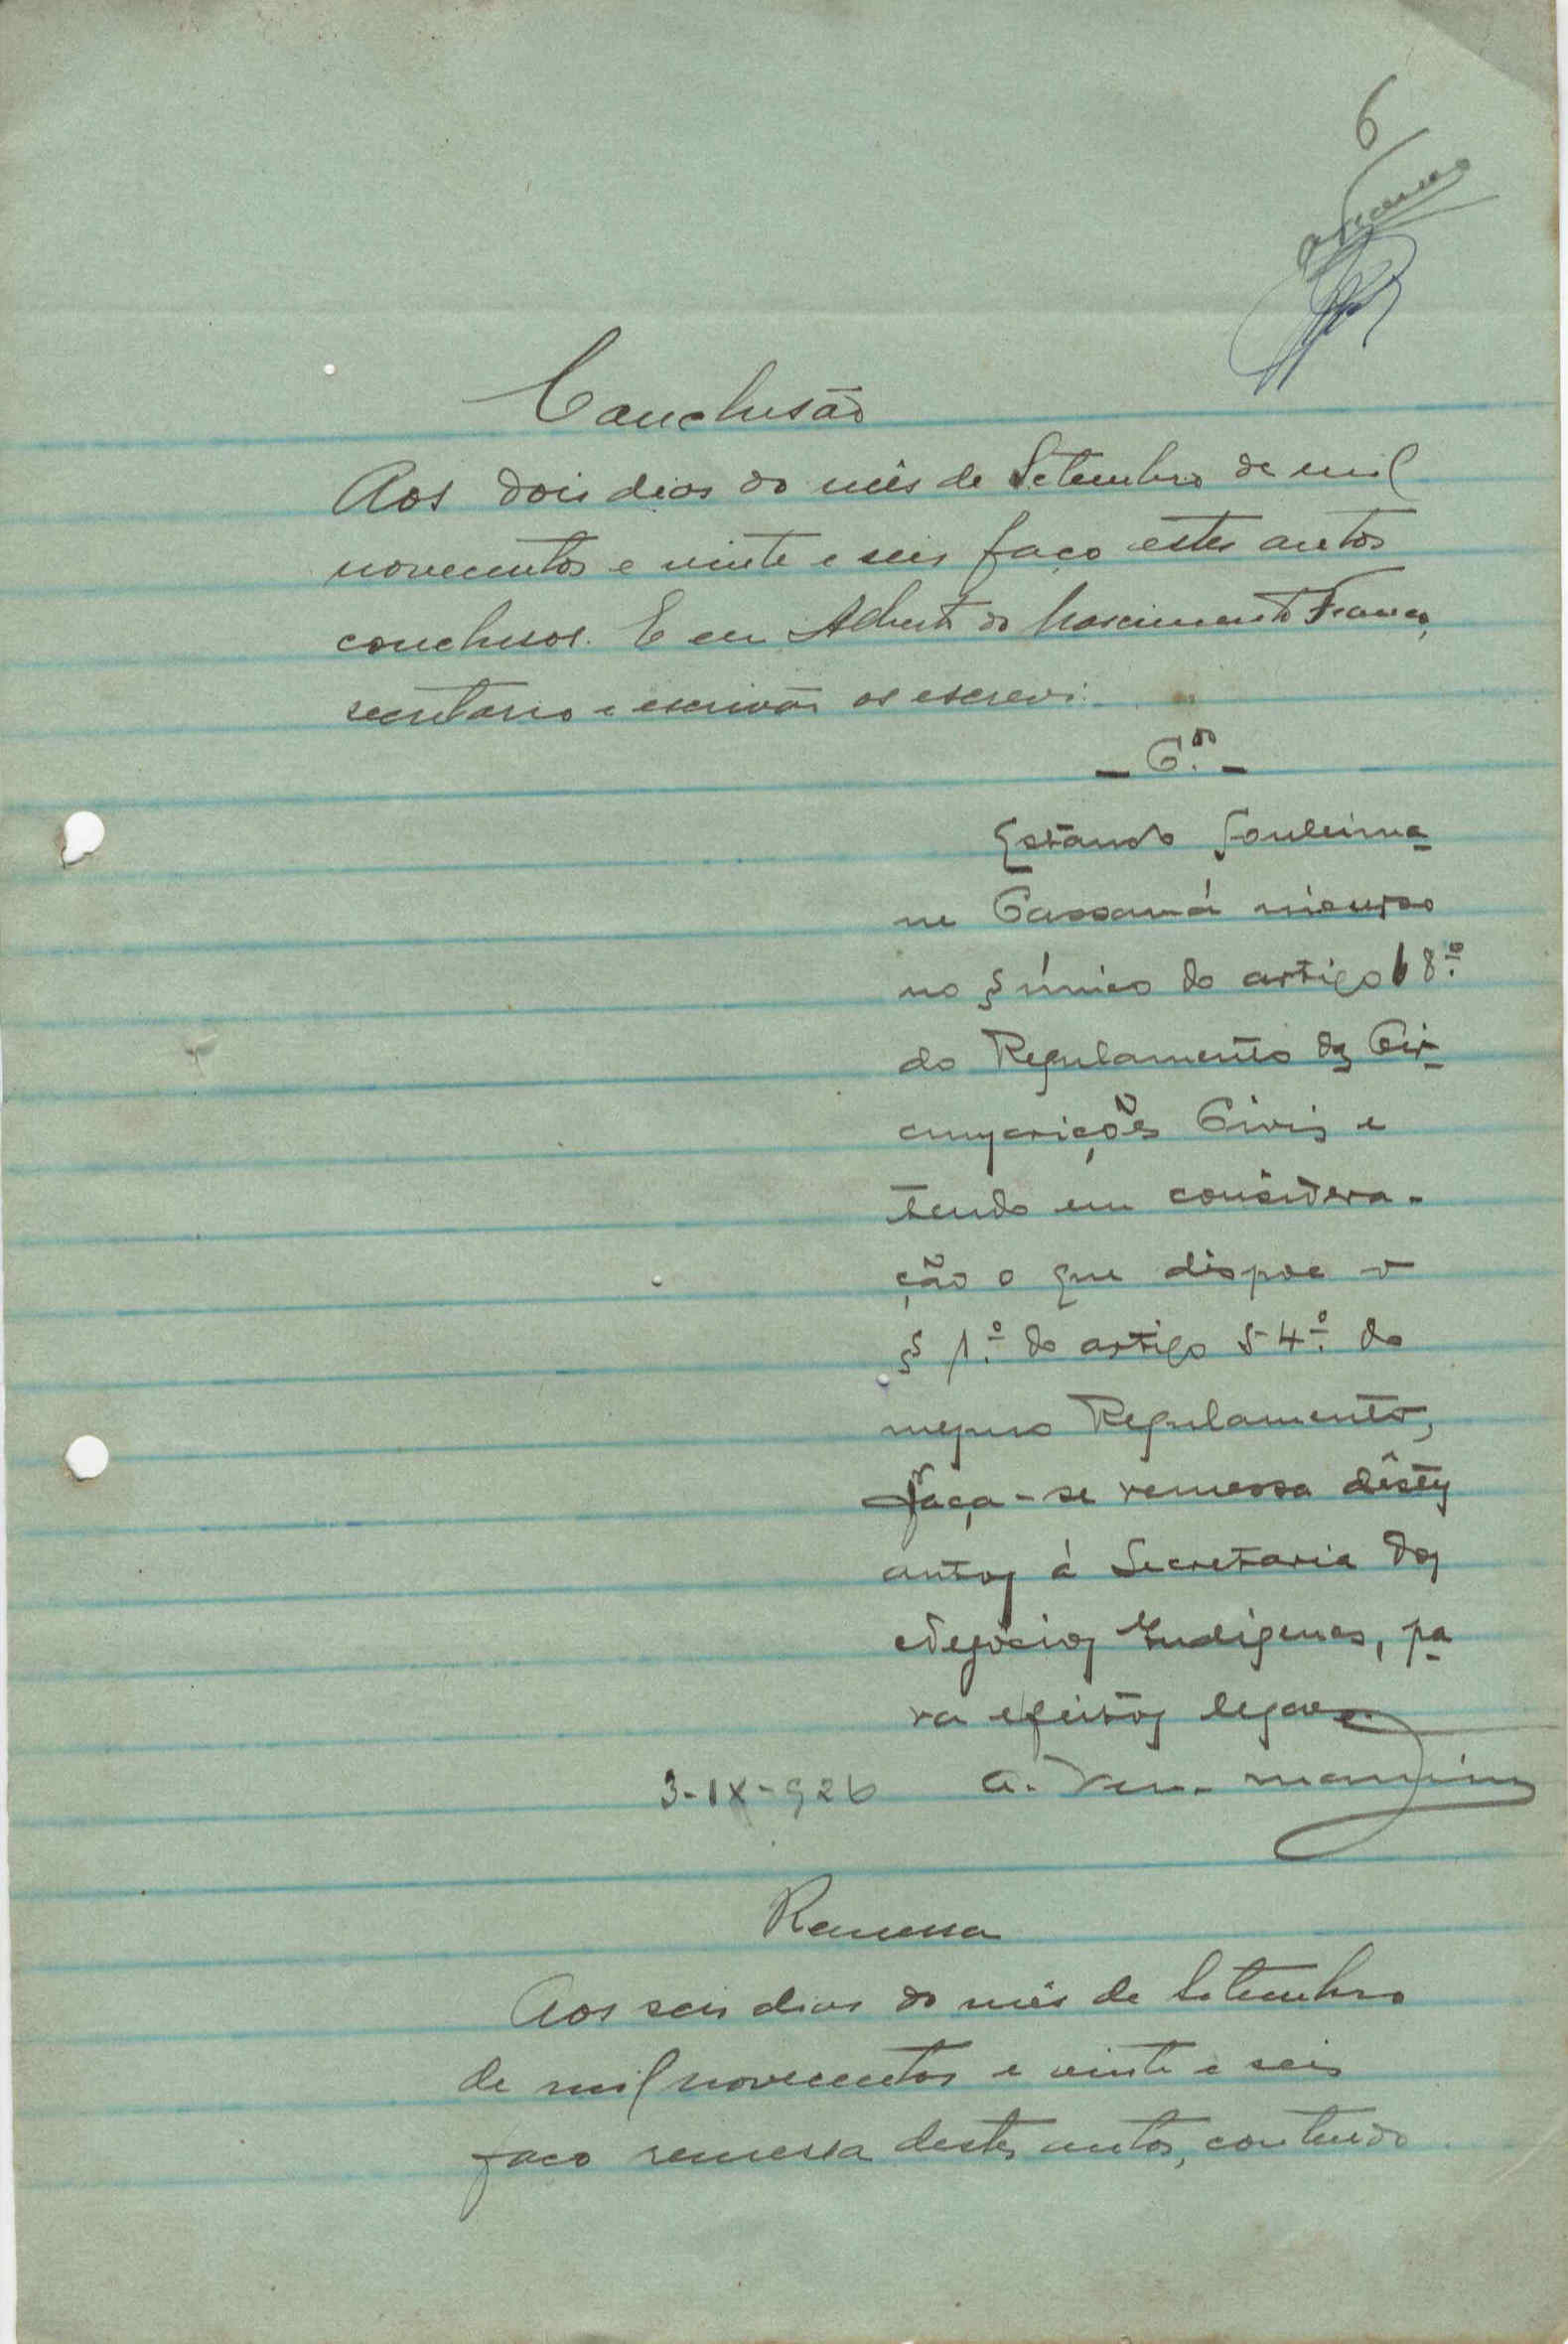 6
Conclusão
Aos dois dias do mês de Setembro de mil
novecentos e vinte e seis faço estes autos
conclusos. E eu Alberto do Nascimento Franco,
secretario e escrivão os escrevi.
Estando Souleima-
ne Cassamá incurso
no § único do artigo 68º
do Regulamento das Cir-
cunscrições Civis e
tendo em considera-
ção o que dispoe o
§ 1.º do artigo 54.º do
mesmo Regulamento,
faça-se remessa dêstes
autos á Secretaria dos
Negócios Indigenas, pa-
ra efeitos legaes.
3-IX-926 A.
Remessa
Aos seis dias do mês de Setembro
de mil novecentos e vinte e seis
faço remessa destes autos, contendo